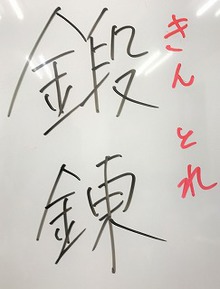 きんとれ
鍛錬